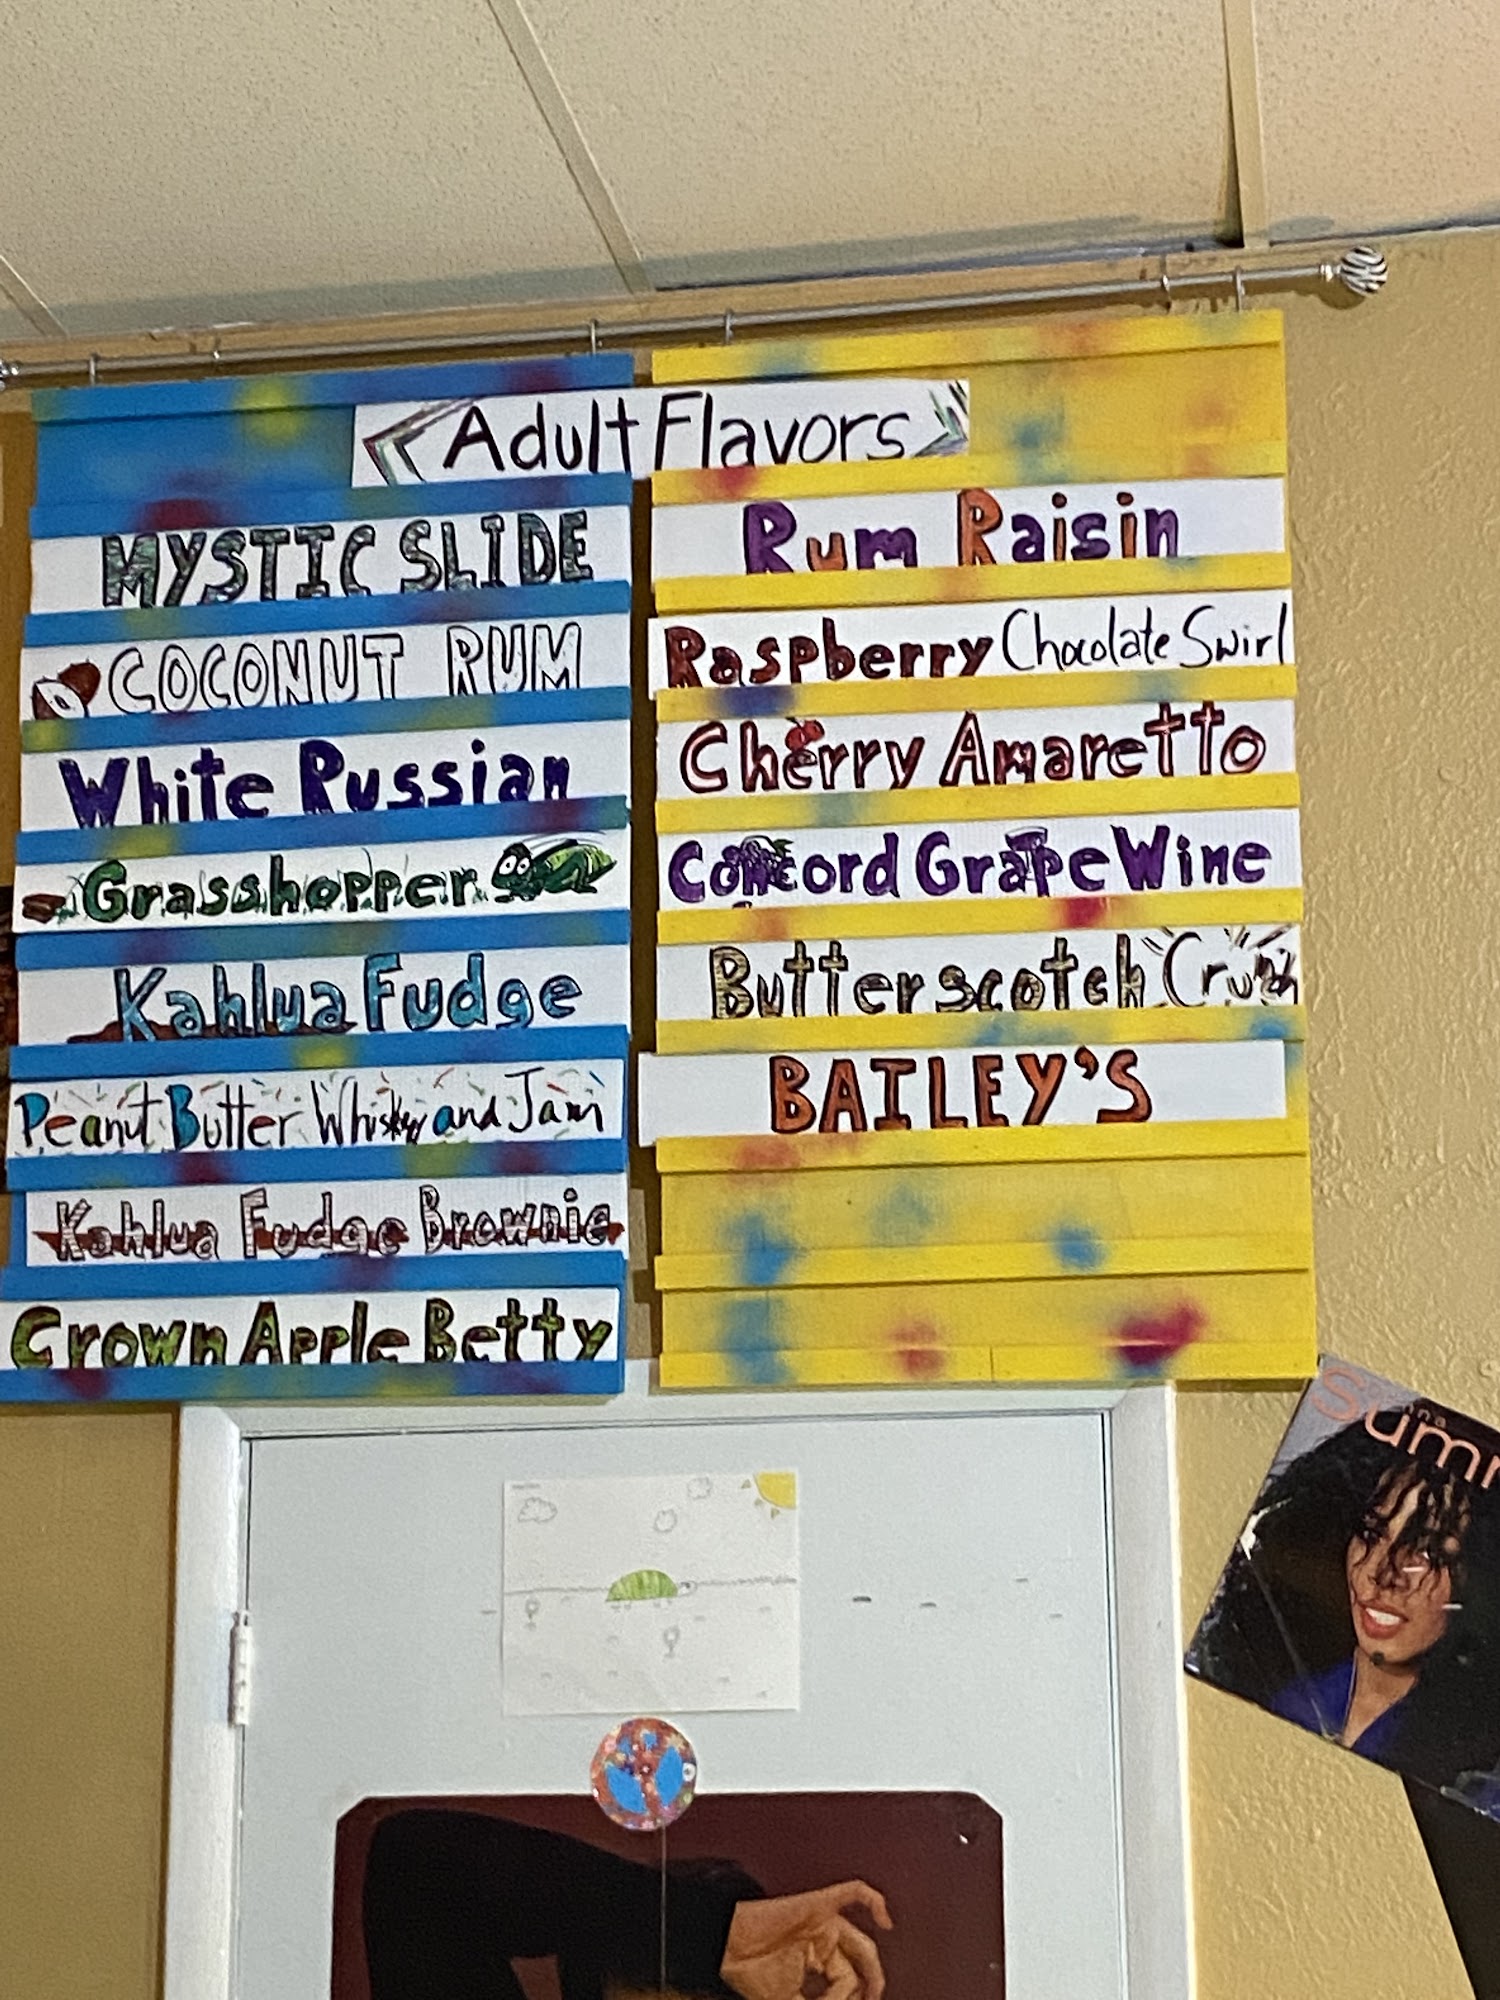 Adult Flavors
MYSTIC SLIDE
COCONUT RUM
White Russian
Grasshopper
Kahlua Fudge
Peanut Butter Whiskey and Jam
Kahlua Fudge Brownie
Crown Apple Betty
Rum Raisin
Raspberry Chocolate Swirl
Cherry Amaretto
Concord Grape Wine
Butterscotch Crunch
BAILEY'S